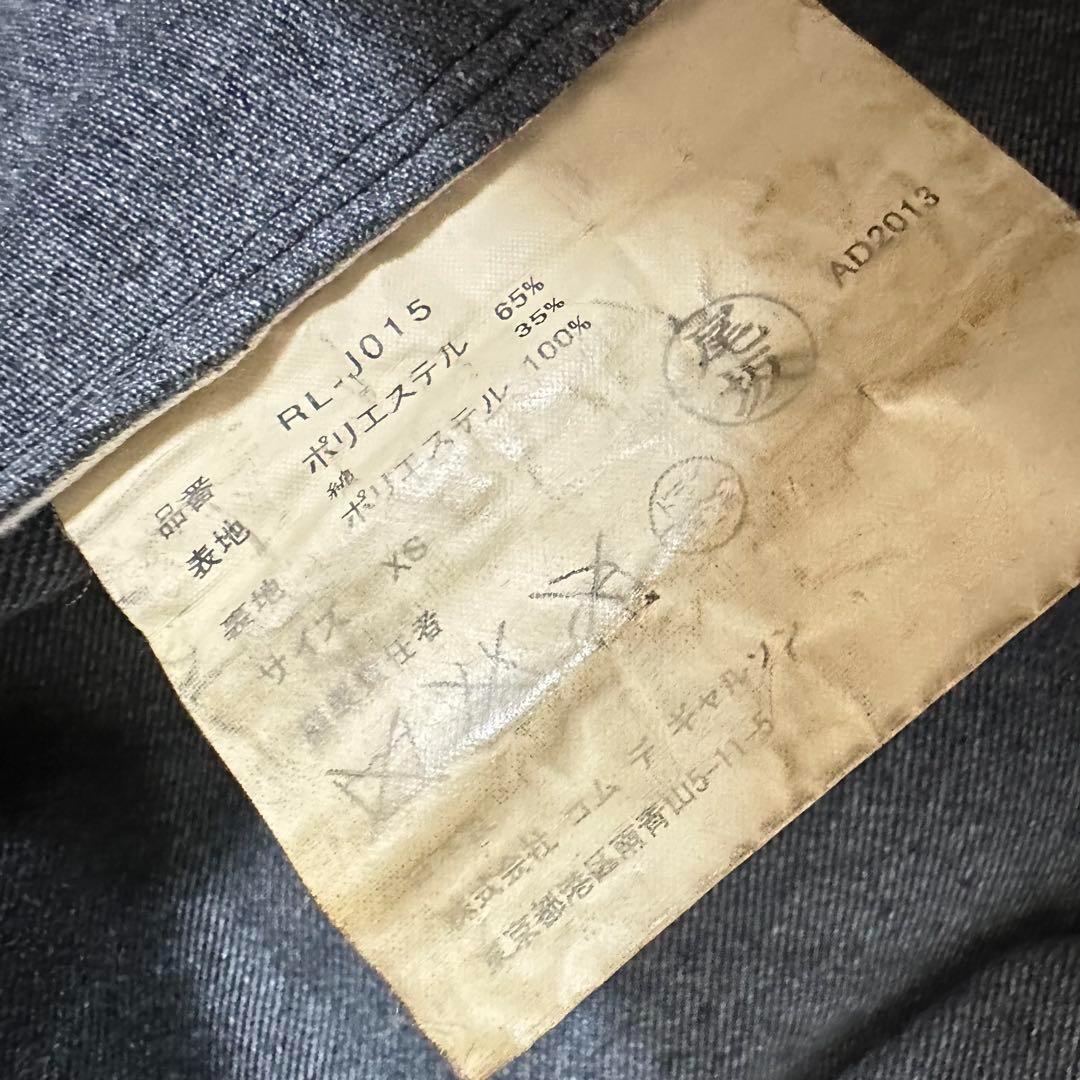 品番 RL-J015
表地 ポリエステル 65%
綿 35%
表地 ポリエステル 100%
サイズ XS
尾坂
株式会社 コム デ ギャルソン
東京都港区南青山5-11-5
AD2013